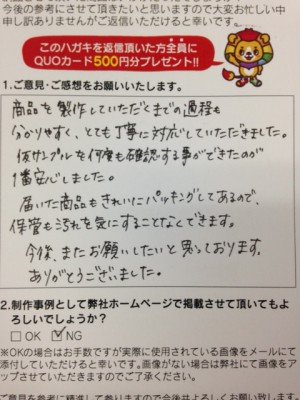 今後の参考にさせて頂きたいと思いますので大変お忙しい中
申し訳ありませんがご返信いただけると幸いです。
このハガキを返信頂いた方全員に
QUOカード500円分プレゼント!!
1.ご意見・ご感想をお願いいたします。
商品を製作していただくまでの過程も
分かりやすく、とても丁寧に対応していただきました。
仮サンプルを何度も確認する事ができたのが
1番安心しました。
届いた商品もきれいにパッキングしてあるので、
保管も汚れを気にすることなくできます。
今後、またお願いしたいと思っております。
ありがとうございました。
2.制作事例として弊社ホームページで掲載させて頂いてもよ
ろしいでしょうか?
□OK ☑NG
※OKの場合はお手数ですが実際に使用されている画像をメールにて
添付していただけると幸いです。画像がない場合は弊社にて画像をア
ップさせていただきますのでご了承ください。
ご意見を参考に精進して参りますので今後共よろしくお願い致します。